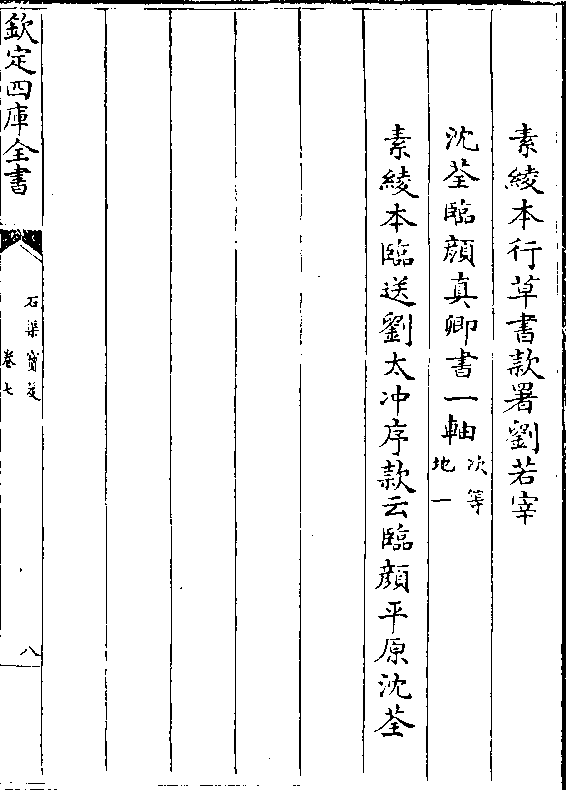 素綾本行草書款署劉若宰
沈荃臨顔真卿書一軸次等地一
素綾本臨送劉太冲序款云臨顔平原沈荃
欽定四庫全書
石渠寳笈
卷七
八